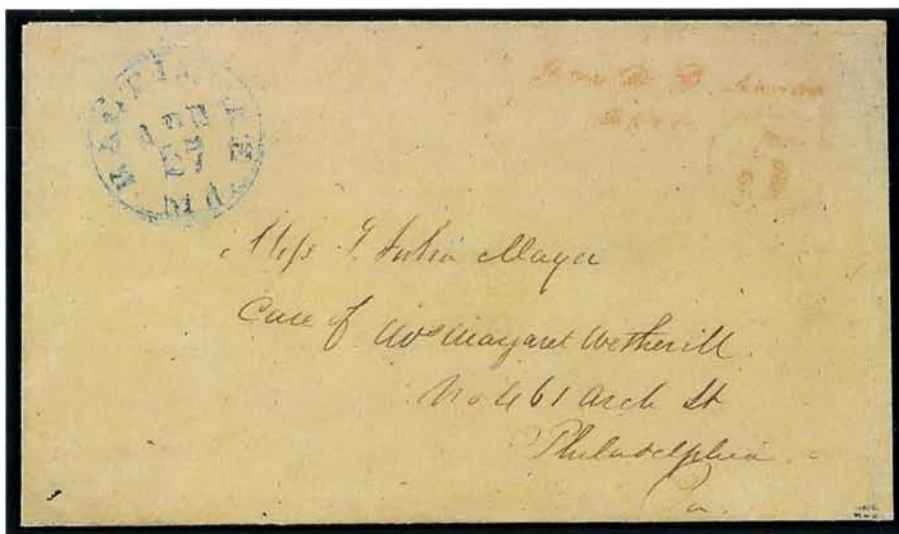 BALTIMORE
APR
27
Md.
5
Miss Julia Mayer
Care of Mrs Margaret Wetherill
No 461 Arch St
Philadelphia
Pa